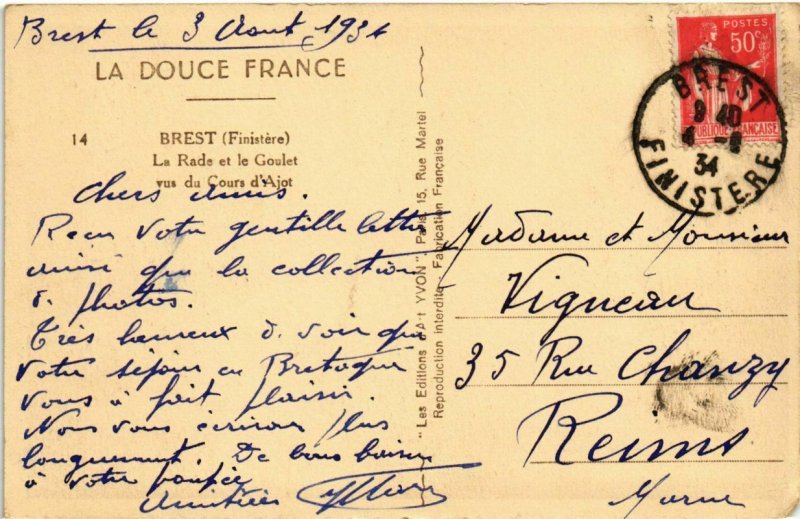 Brest le 3 Aout 1934
LA DOUCE FRANCE
14
BREST (Finistère)
La Rade et le Goulet
vus du Cours d'Ajot
Chers amis.
Reçu votre gentille lettre
ainsi que la collection
d. photos.
Très heureux d. voir que
votre séjour en Bretagne
vous a fait plaisir.
Nous vous écrirons plus
longuement. De bons baisers
à votre poupée
Amitiés
"Les Editions d'Art YVON". Paris, 15, Rue Martel
Reproduction interdite - Fabrication Française
POSTES
50c
REPUBLIQUE FRANÇAISE
BREST
9 40
4 -8
34
FINISTERE
Madame et Monsieur
Vigneau
35 Rue Chanzy
Reims
Marne